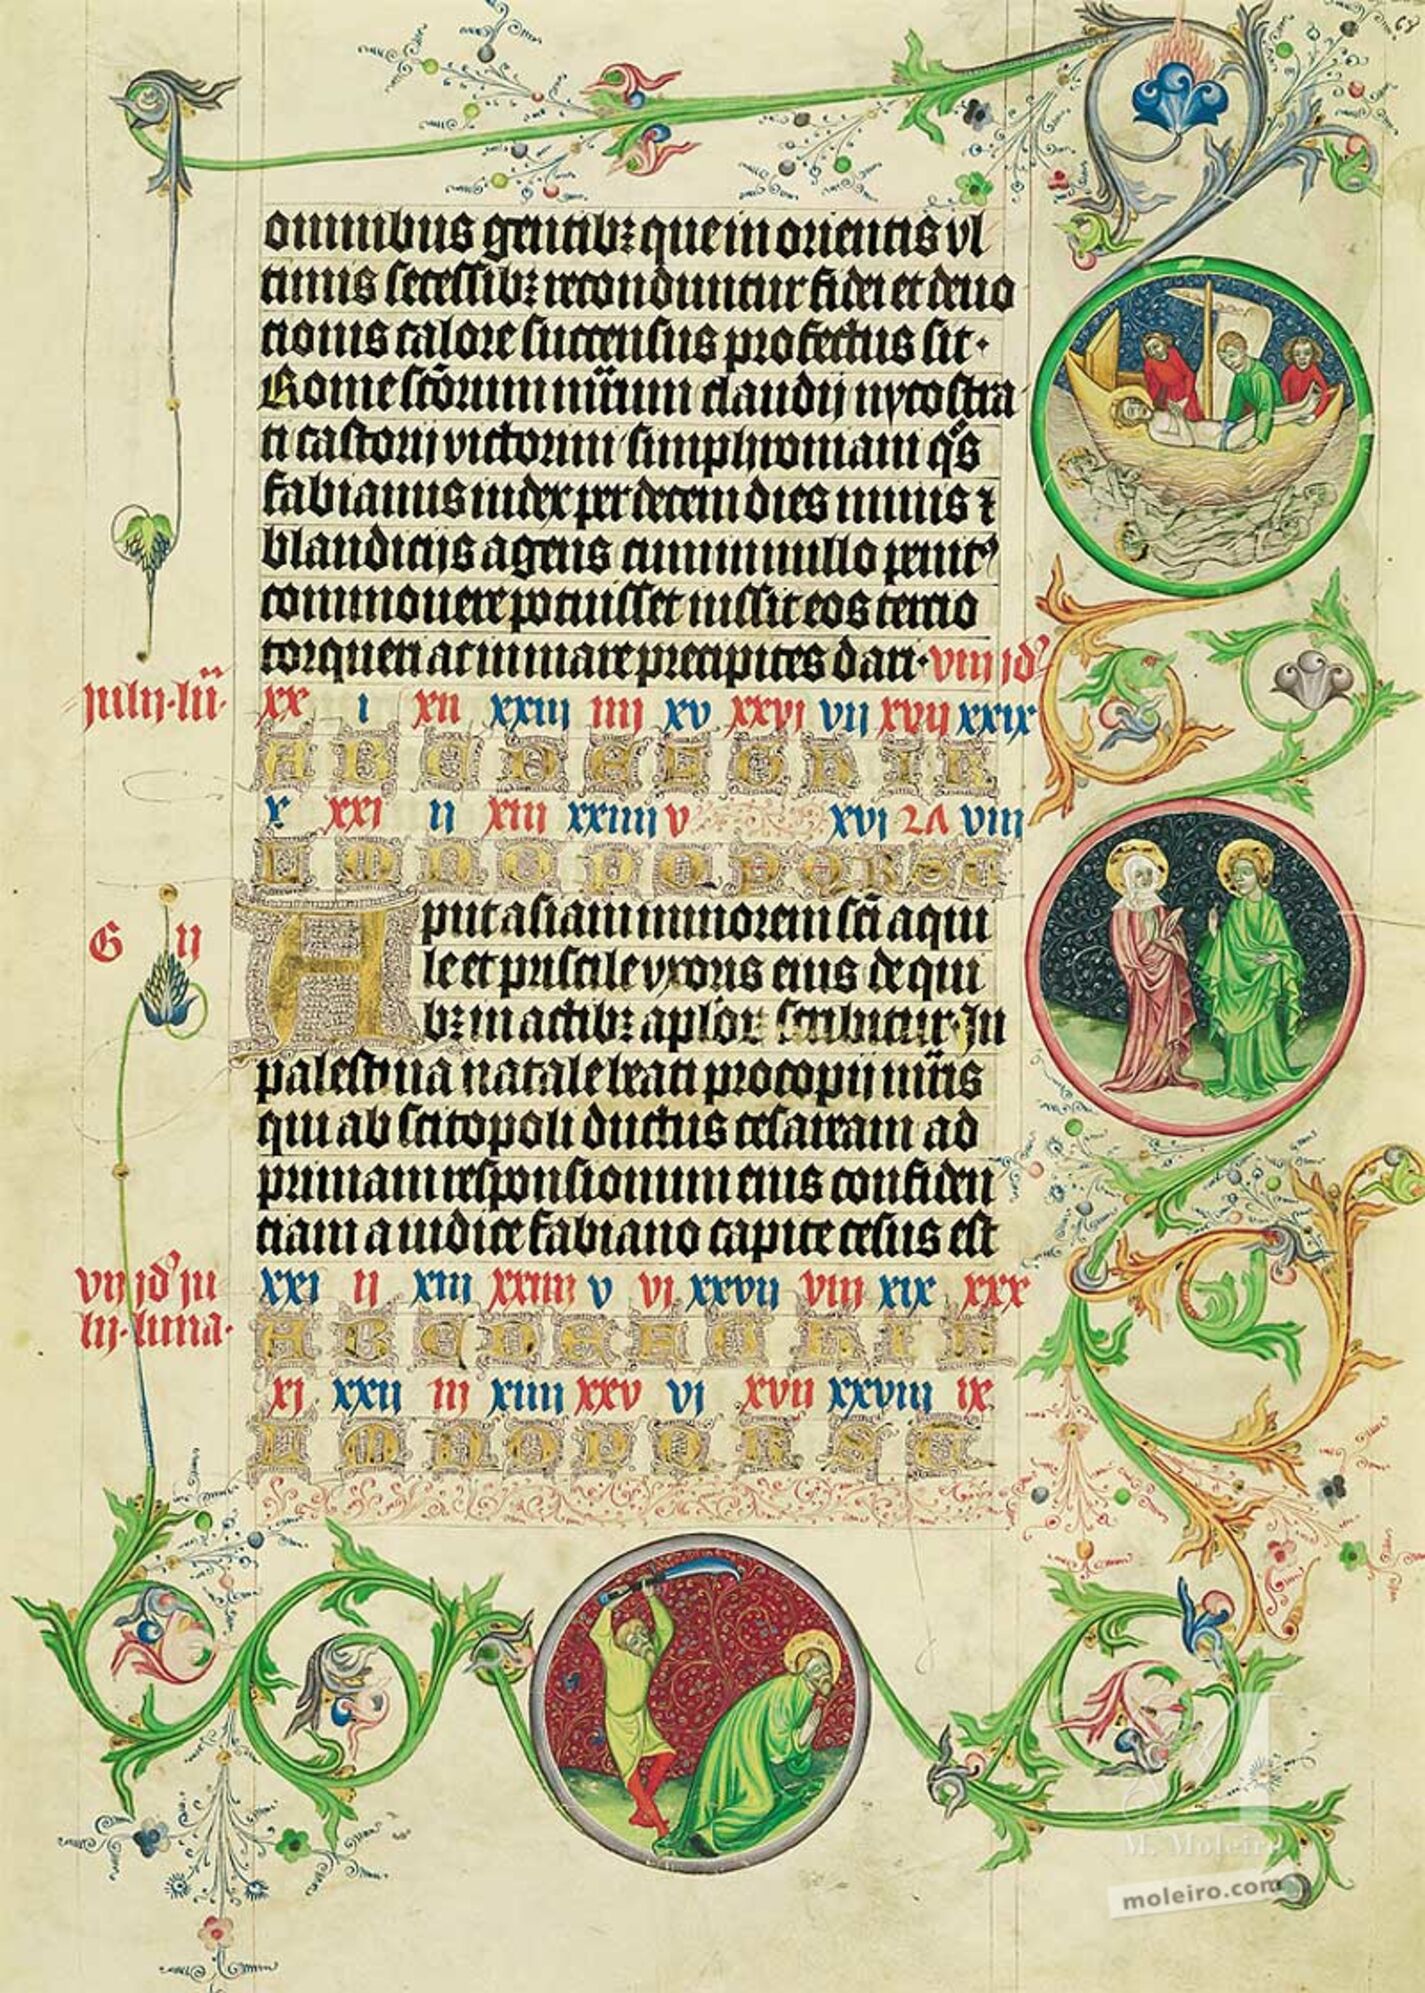 68
omnibus gentibꝫ que in orientis vl
timis secessibꝫ reconduntur fidei et deuo
tionis calore succensus profectus sit·
Rome scōrum mr̄um claudij nycostra
ti castorij victorini simphroniani qͦs
fabianus iudex per decem dies minis ⁊
blandicijs agens cum in nullo penitꝰ
commouere potuisset iussit eos tercio
torqueri ac in mare precipites dari· viii jdꝰ
julij·lūā·
xx i xii xxiii iiii xv xxvi vii xvii xxix
A B C D E F G H I K
x xxi ii xiii xxiiii v xvi 2A viii
L M N O P O P Q R S T
G ii
Aput asiam minorem sc̄i aqui
le et priscile vxoris eius de qui
bꝫ in actibꝫ aplōꝝ scribitur· In
palestina natale beati procopij mr̄is
qui ab scitopoli ductus cesaream ad
primam responsionum eius confiden
tiam a iudice fabiano capite cesus est
vii jdꝰ ju
lij·luna·
xxi ii xiii xxiiii v vi xxvii viii xix xxx
A B C D E F G H I K
xi xxii iii xiiii xxv vi xvii xxviii ix
L M N O P Q R S T
M
M. Moleiro
moleiro.com